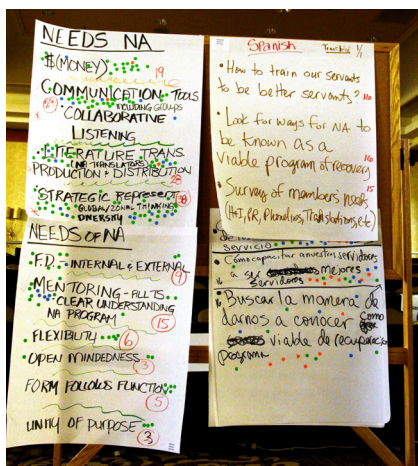 NEEDS NA
$(MONEY)
19
COMMUNICATION TOOLS
INCLUDING GROUPS
COLLABORATIVE
LISTENING
LITERATURE TRANS
(NA TRANSLATORS)
PRODUCTION & DISTRIBUTION
28
STRATEGIC REPRESENT
GLOBAL/ZONAL THINKING
DIVERSITY
NEEDS OF NA
F.D. - INTERNAL & EXTERNAL
9
MENTORING - ALL TS
CLEAR UNDERSTANDING
NA PROGRAM
15
FLEXIBILITY
6
OPEN MINDEDNESS
3
FORM FOLLOWS FUNCTION
5
UNITY OF PURPOSE
3
Spanish
• How to train our servants
to be better servants?
• Look for ways for NA to
be known as a
viable program of recovery
16
• Survey of members needs
15
(H+I, PR, Phonelines, Translations, etc)
servicio
• Cómo capacitar a nuestros servidores
a ser mejores
servidores
Buscar la manera de
darnos a conocer como
viable de recuperación
programa